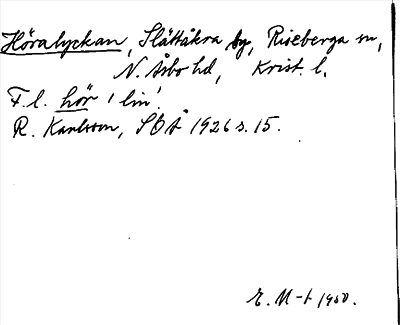 Höralyckan, Slättåkra by, Riseberga sn,
N. Åsbo hd, Krist. l.
F.l. hör 'lin'.
R. Karlsson, SOÅ 1926 s. 15.
E. M-t 1950.